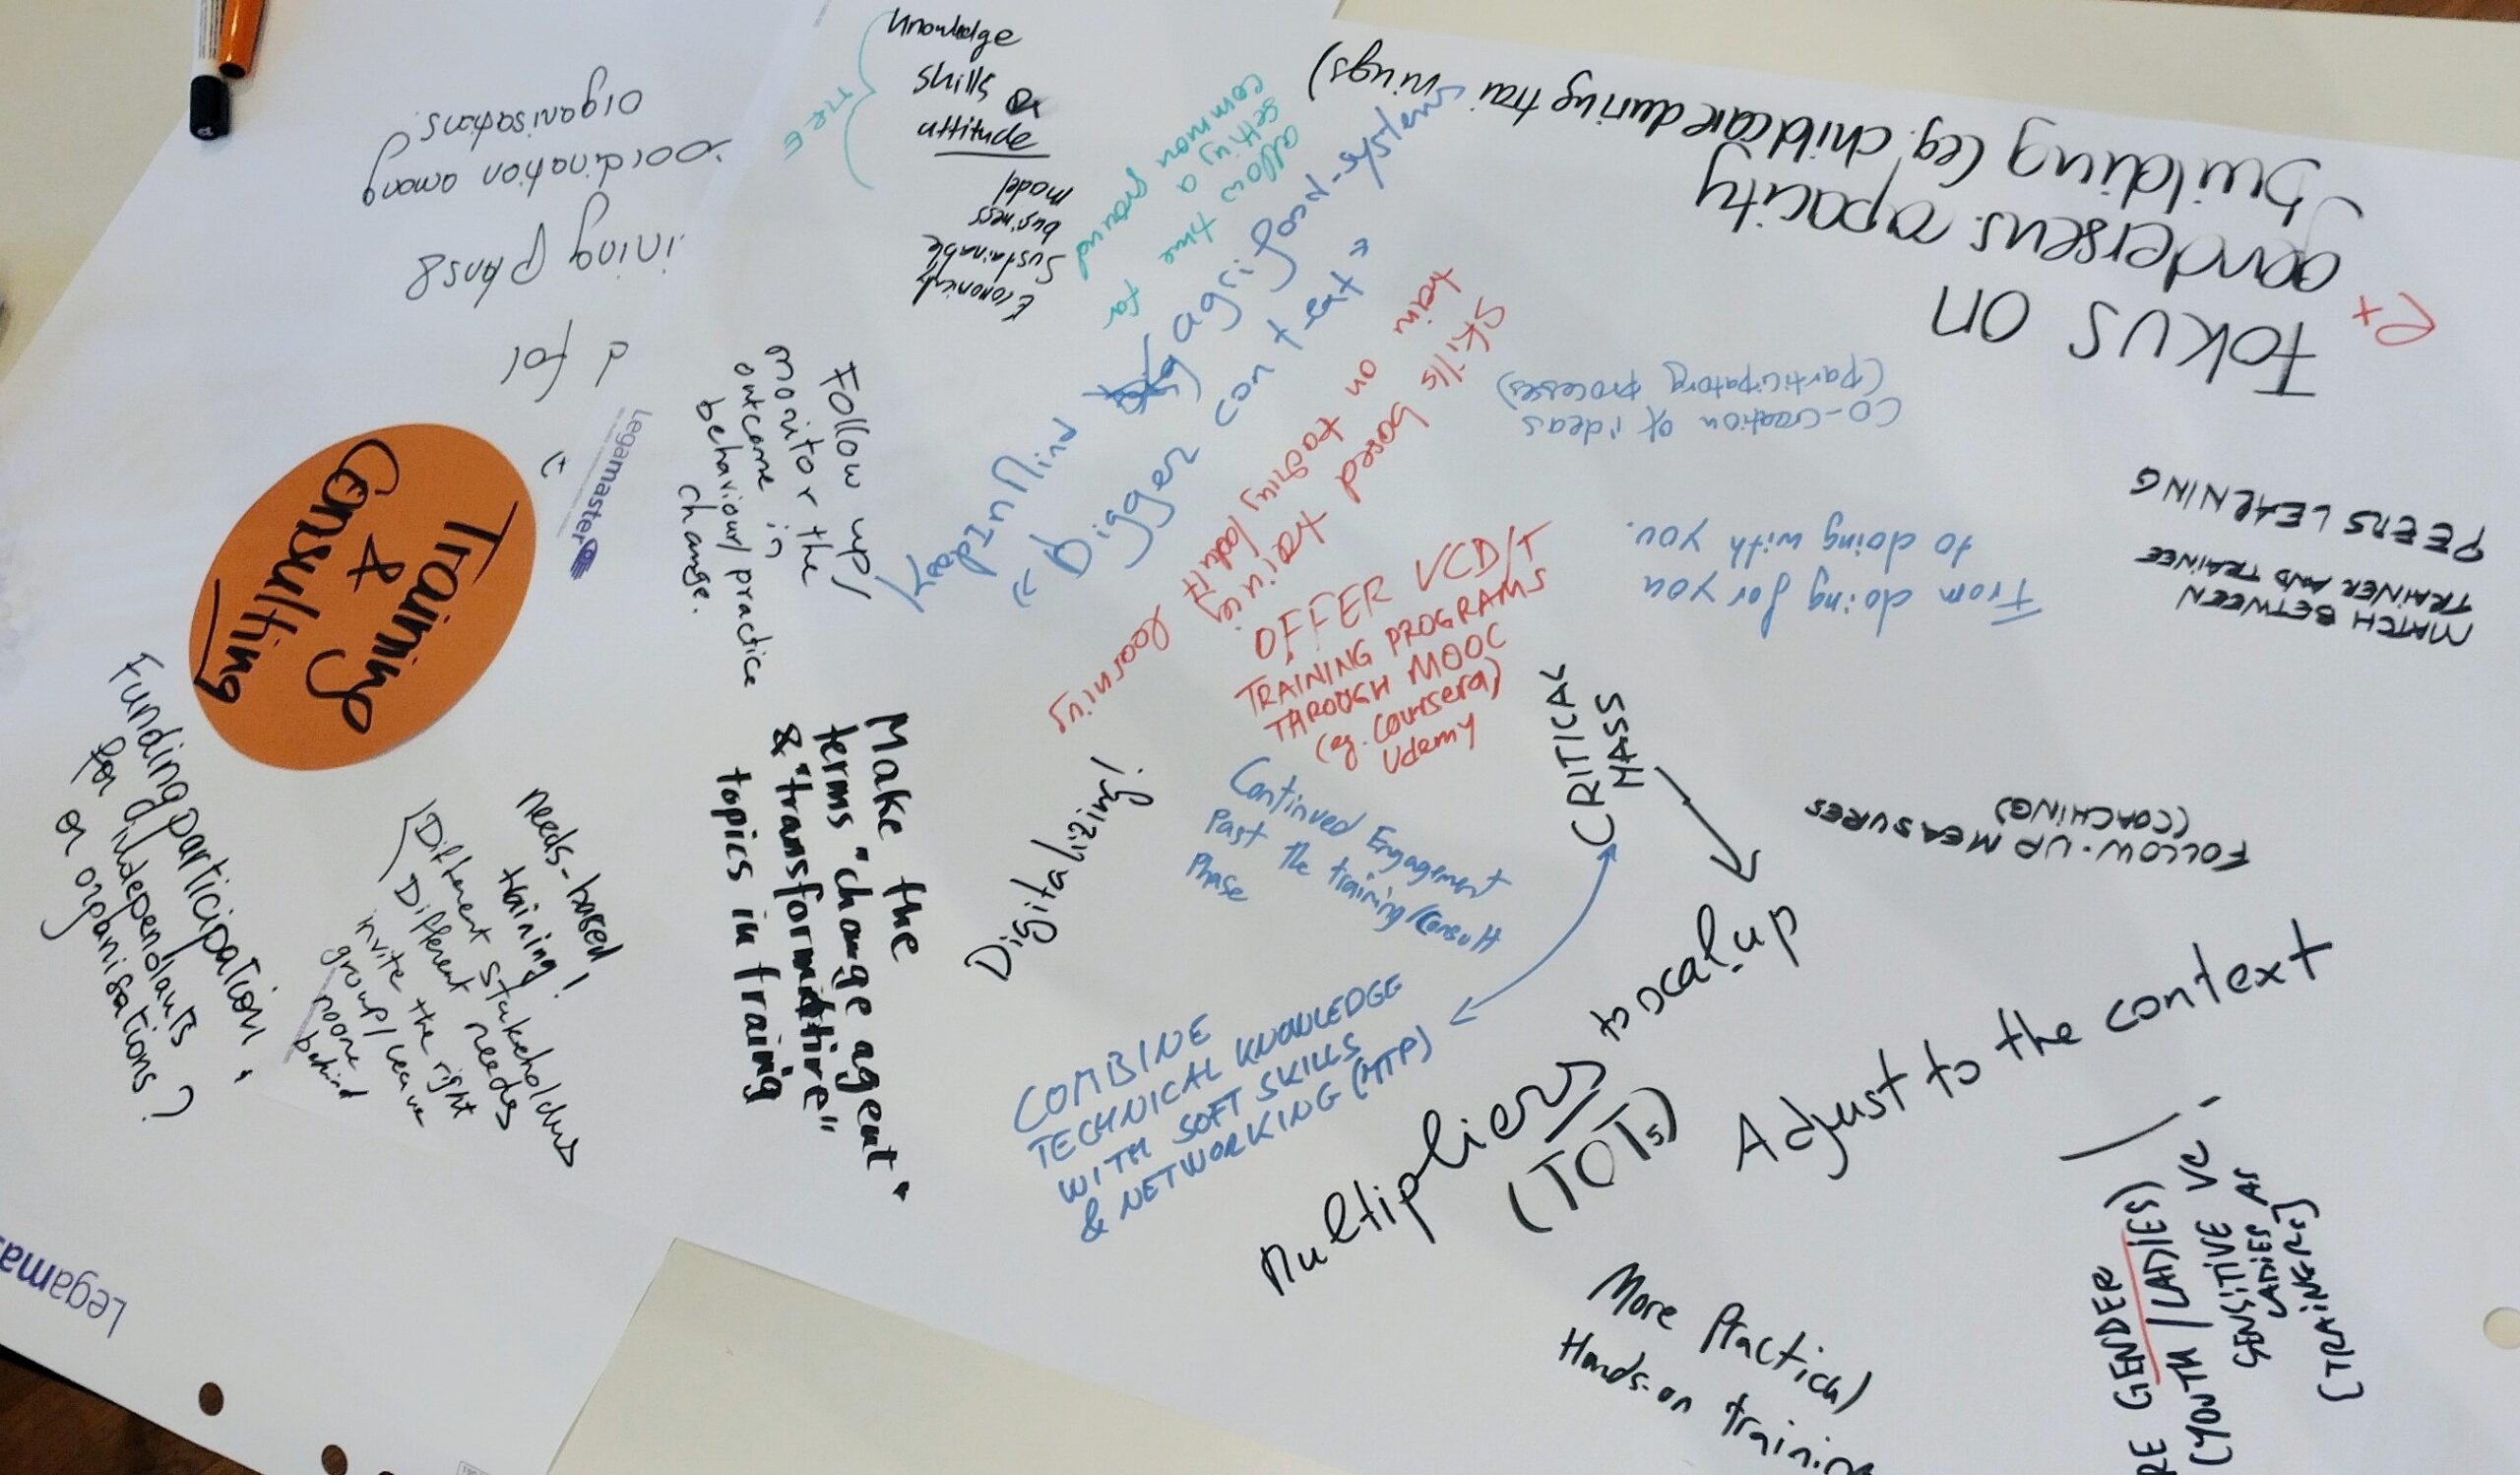 Training
&
Consulting
Legamaster
knowledge
skills &
attitude
Economicly
Sustainable
business
model
TIRE
allow time for
setting a
common ground
Keep in Mind
agrifood-systems
"Bigger context"
Skills based training
train on teaching/adult learning
FOKUS ON
genderseus. capacity
building (eg. childcare during trainings)
co-creation of ideas
(participatory processes)
From doing for you
to doing with you.
PEERS LEARNING
MATCH BETWEEN
TRAINER AND TRAINEE
FOLLOW-UP MEASURES
(COACHING)
ining plans &
coordination among
organisations.
Follow up/
monitor the
outcome in
behaviour/practice
change.
OFFER VCD/T
TRAINING PROGRAMS
THROUGH MOOC
(eg. Coursera)
Udemy
CRITICAL
MASS
Continued Engagement
Past the training/consult
Phase
Digitalizing!
Make the
terms "change agent"
& "transformative"
topics in training
COMBINE
TECHNICAL KNOWLEDGE
WITH SOFT SKILLS
& NETWORKING (MTP)
Multipliers to scal-up
(TOTs)
Adjust to the context
More Practical
Hands-on training
RE GENDER
(YOUTH/LADIES)
SENSITIVE VC
LADIES AS
(TRAINERS)
Funding participation
for independants
or organisations?
needs-based
training!
Different stakeholders
Different needs
invite the right
group/leave
noone
behind
Legama